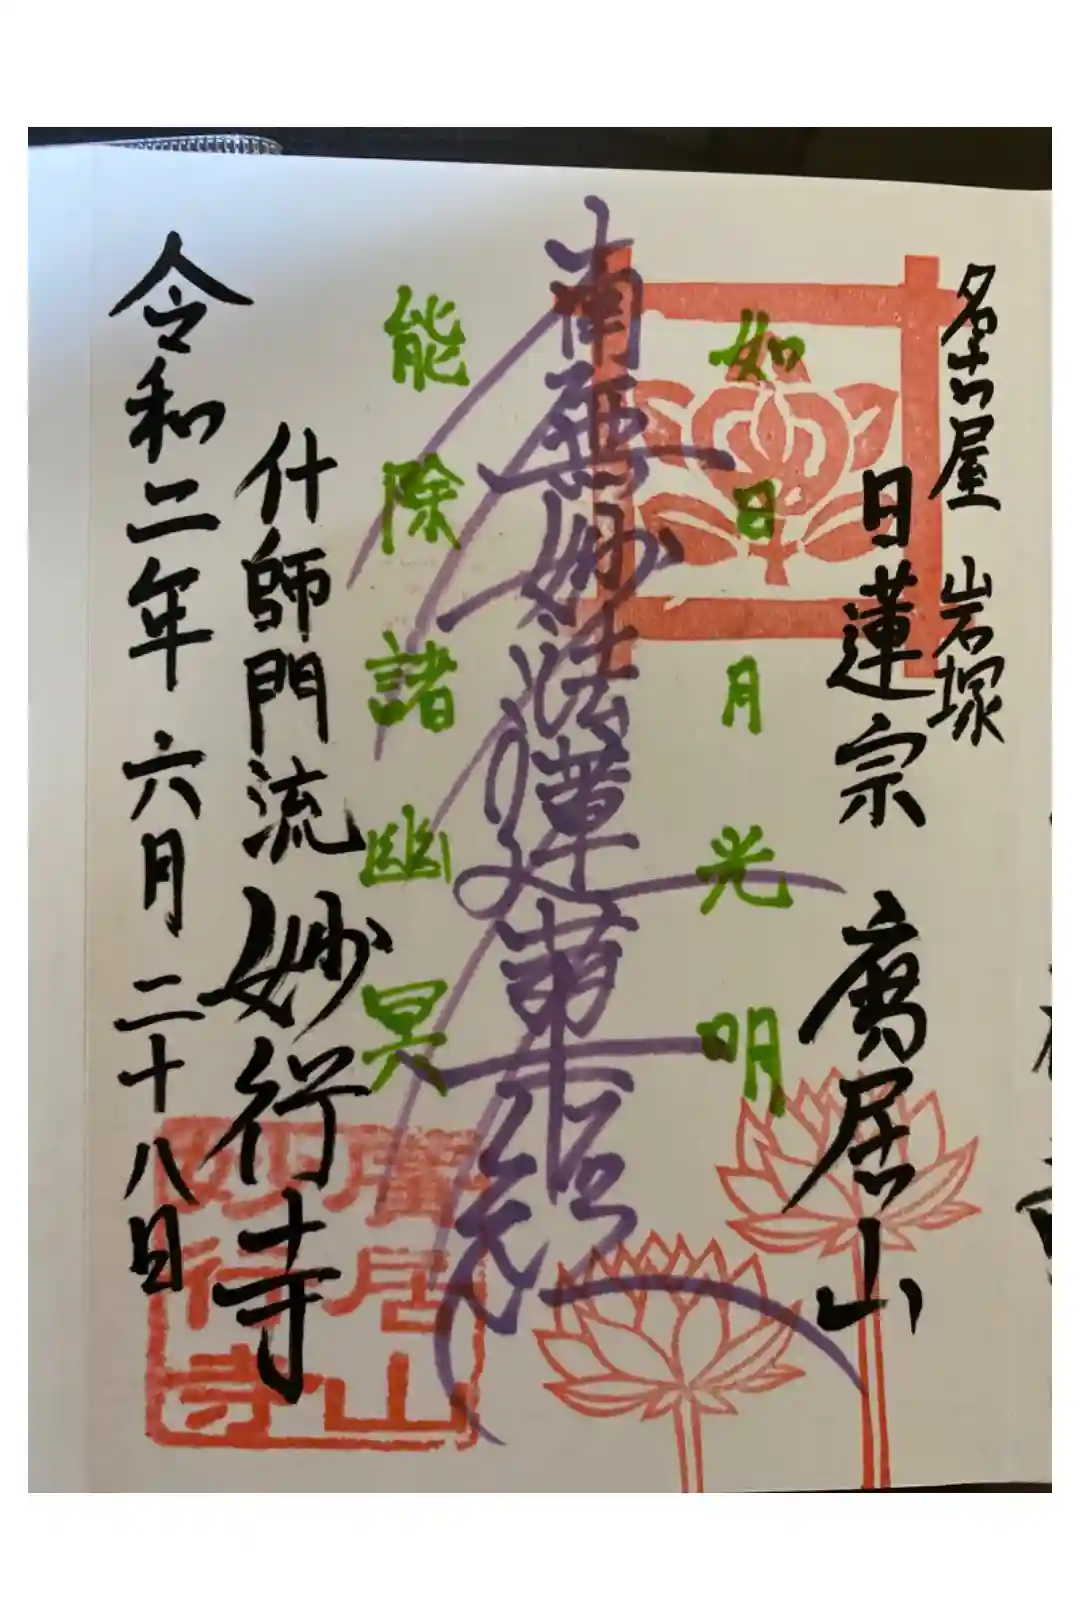 名古屋 岩塚
日蓮宗 廣居山
如日月光明
南無妙法蓮華経
能除諸幽冥
什師門流 妙行寺
令和二年 六月 二十八日
廣居山
妙行寺